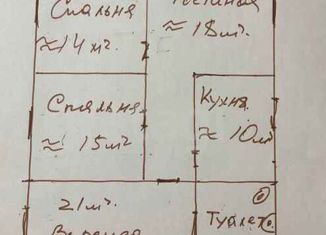 Спальня
≈14м².
Гостиная
≈18м².
Спальня
≈15м².
Кухня
≈10м²
21м².
Туалет